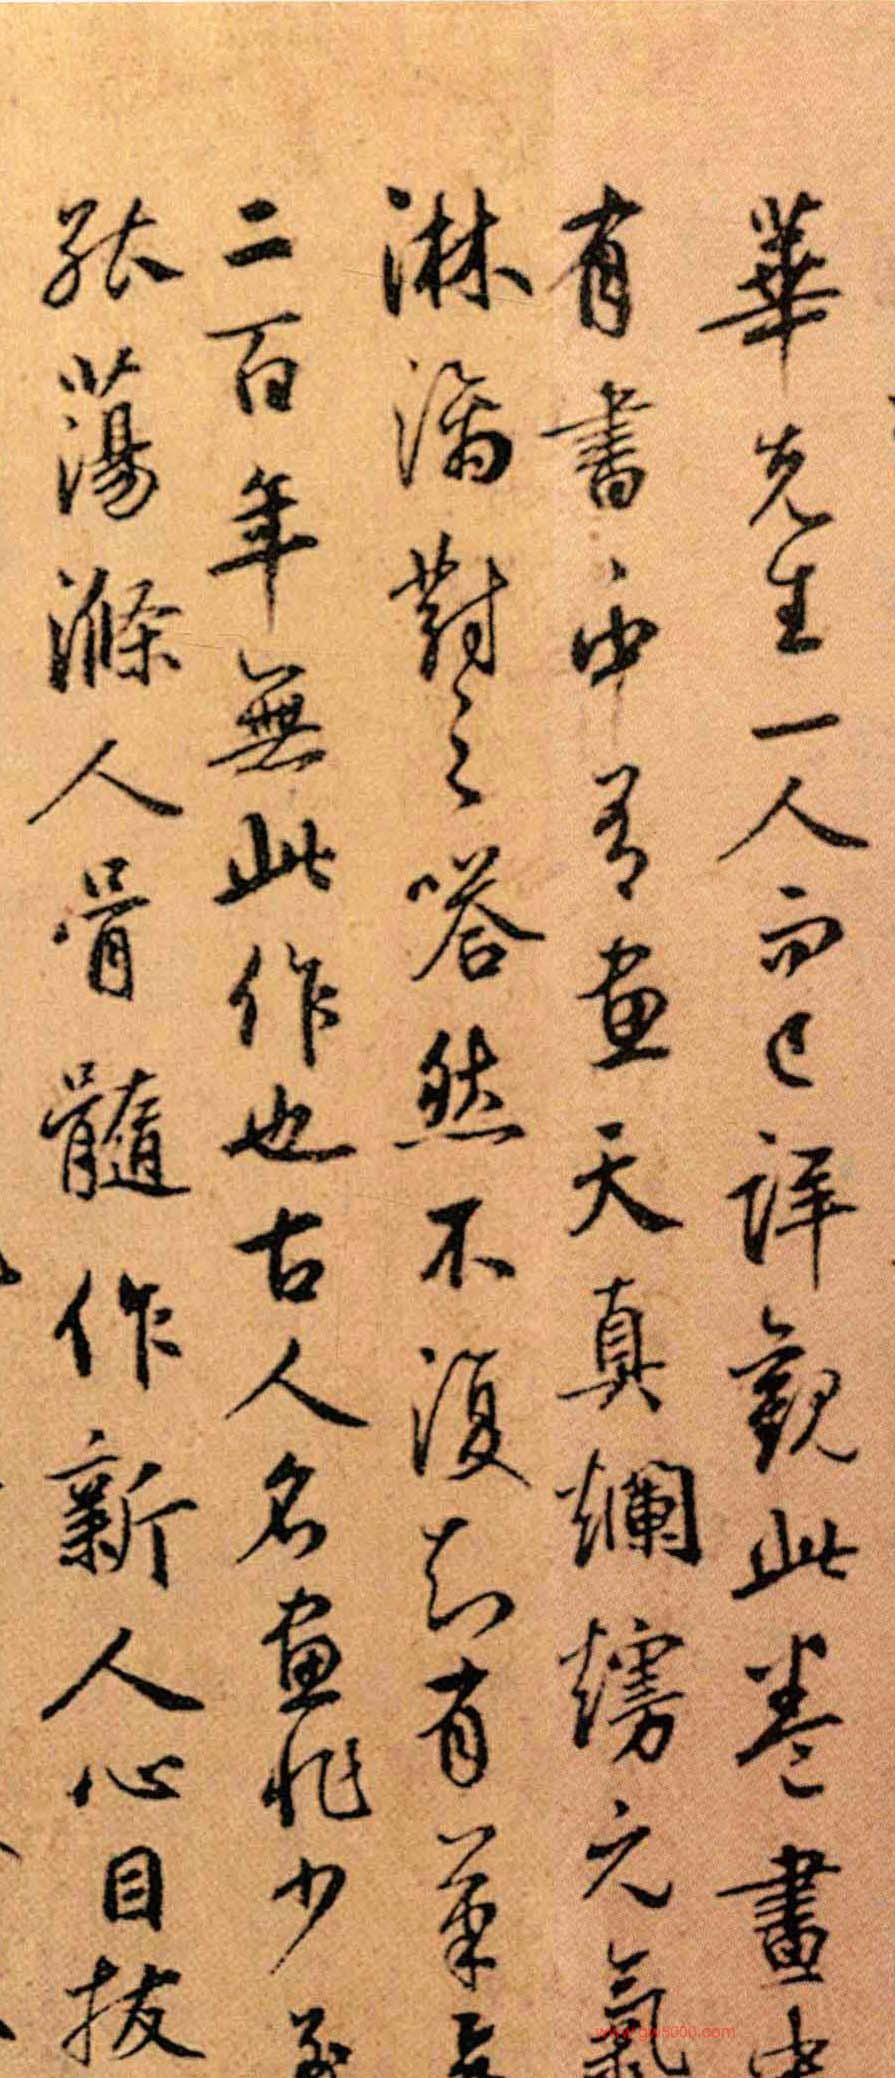 華先生一人而已詳觀此卷畫中
有書書中有畫天真爛熳元氣
淋漓對之嗒然不復知有筆
二百年無此作也古人名畫非少至
能蕩滌人骨髓作新人心目拔